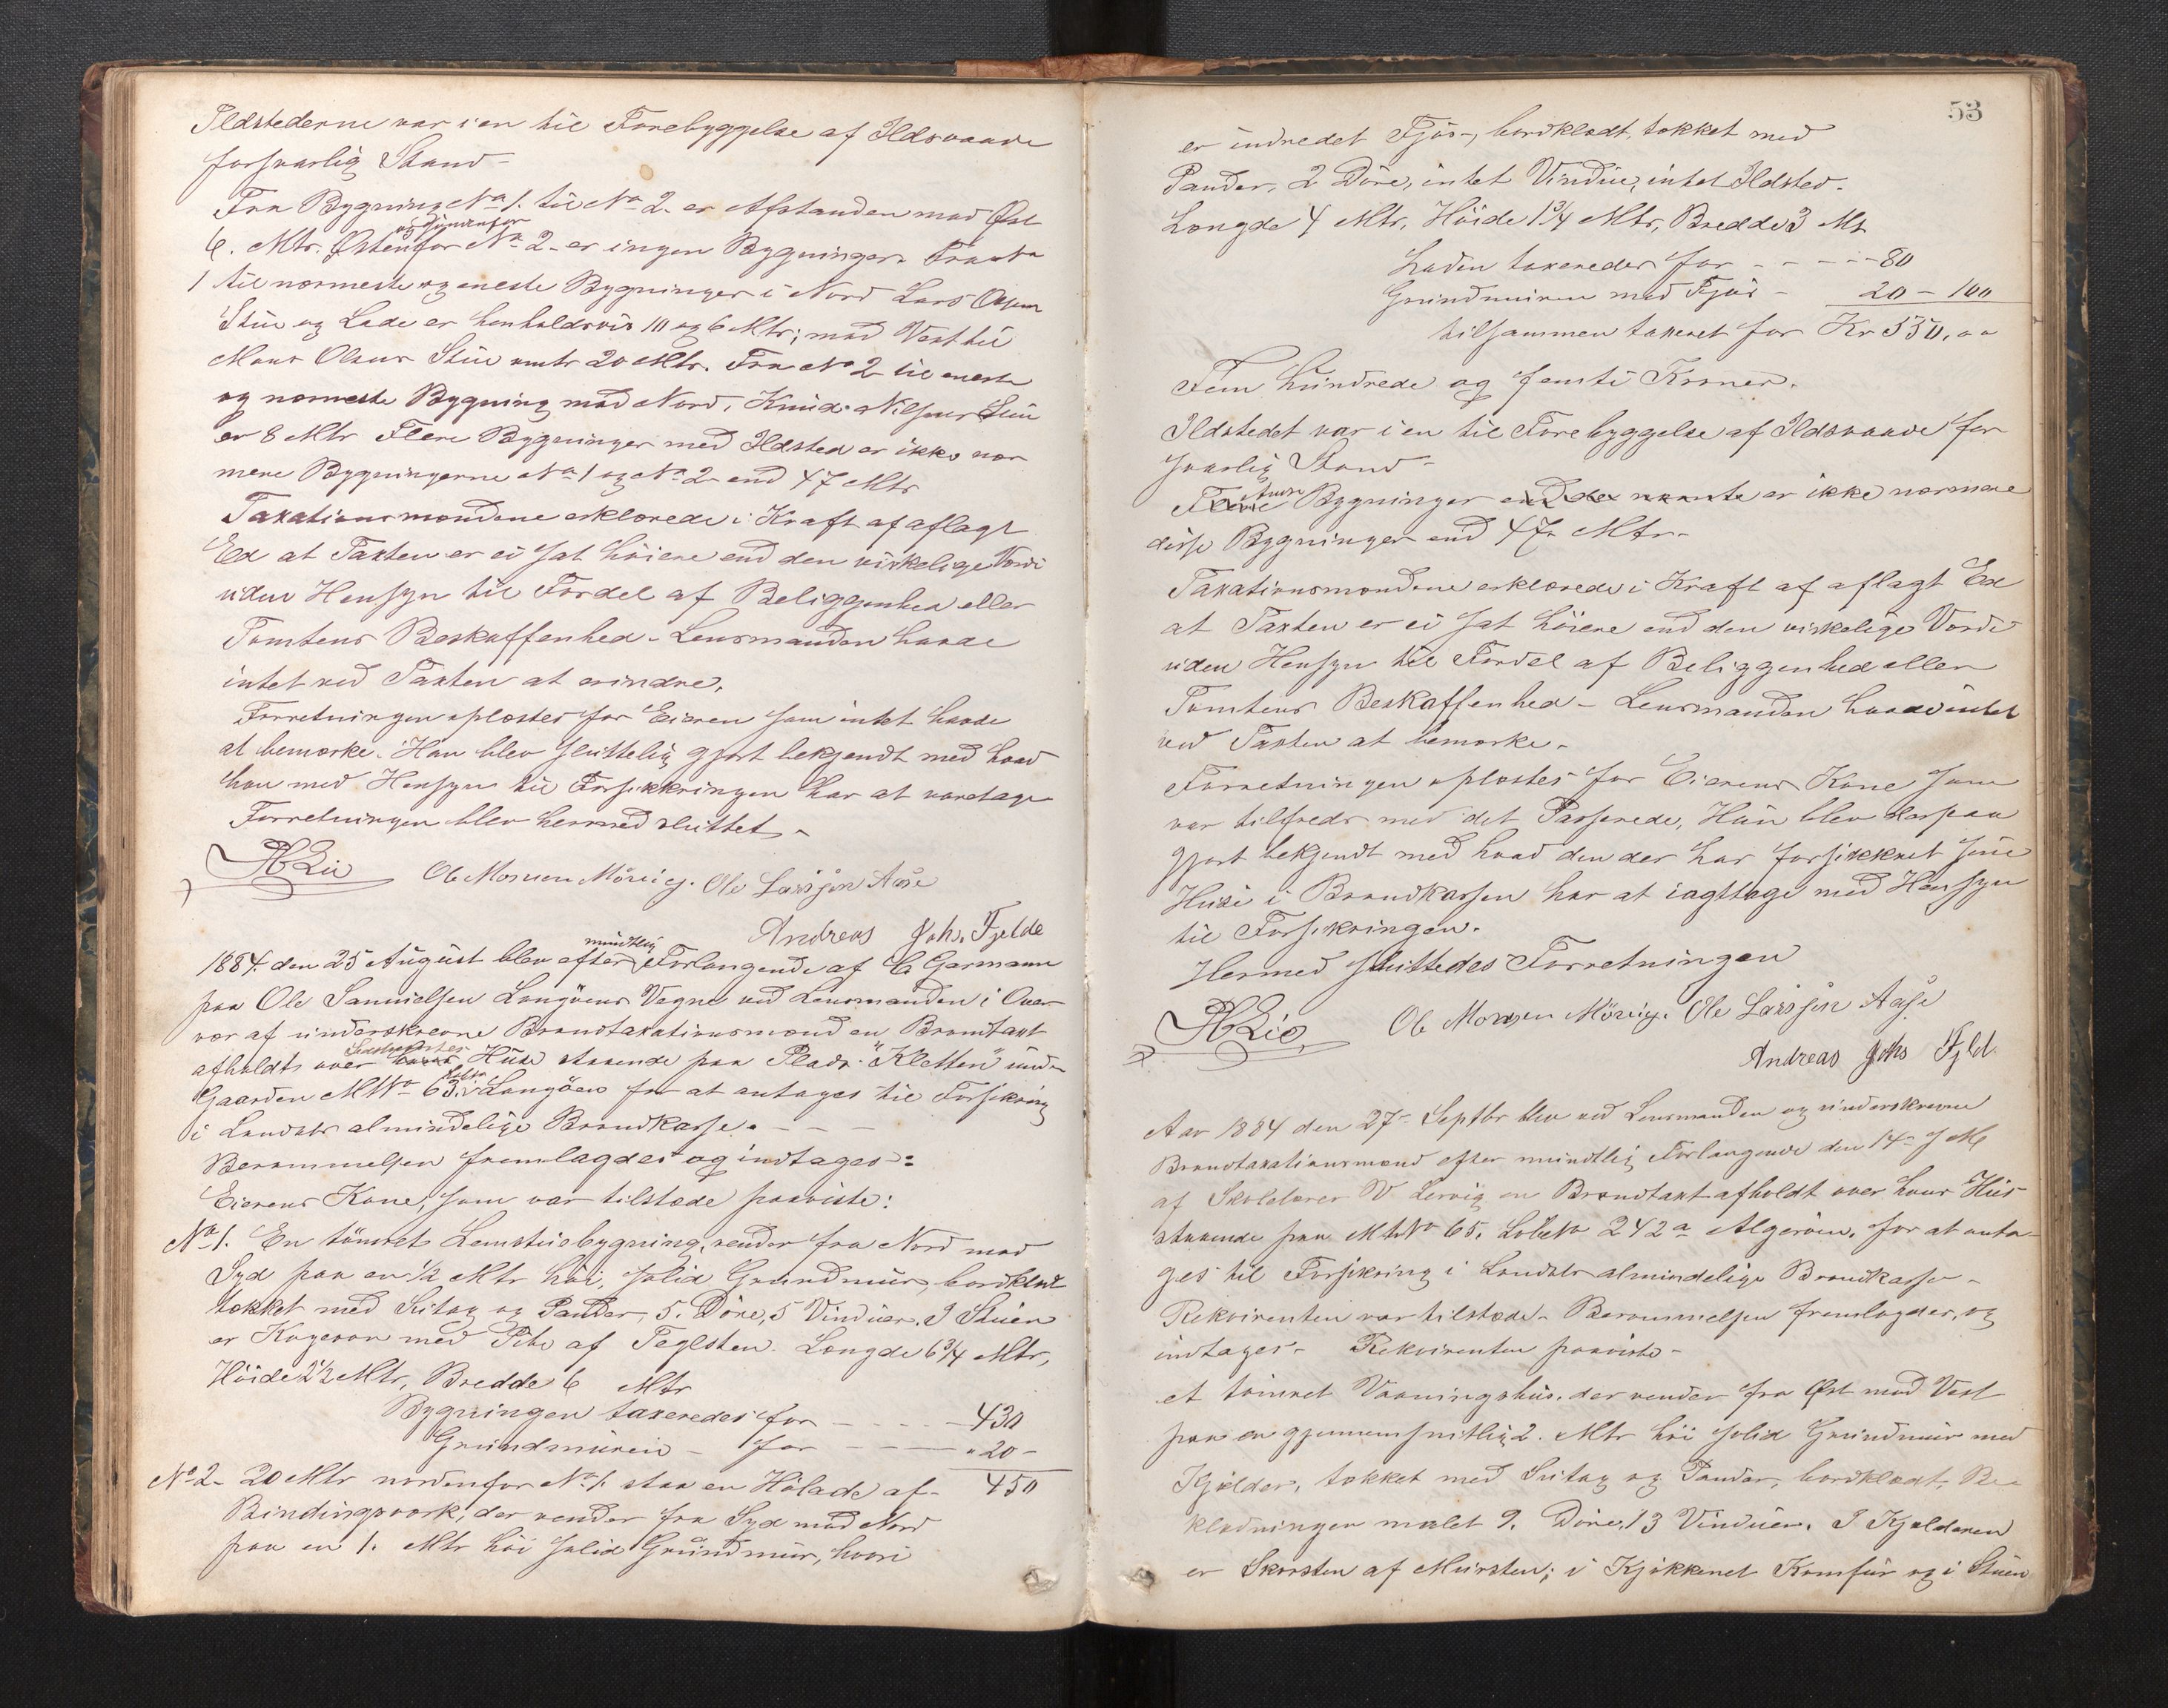 Ildstederne var i en til Forebyggelse af Ildsvaade
forsvarlig Stand -
Fra Bygning No 1. til No 2. er Afstanden mod Øst
og søndenfor
6. Mtr. Østenfor No 2. er ingen Bygninger. Fra No
1 til nærmeste og eneste Bygninger i Nord Lars Olsens
Stue og Lade er henholdsvis 10 og 6 Mtr; mod Vest til
Mons Olsens Stue omtr 20 Mtr. Fra No 2 til eneste
og nærmeste Bygning mod Nord, Knud Nilsens Stue
er 8 Mtr Flere Bygninger med Ildsted er ikke nær
mere Bygningerne No 1 og No 2 end 47 Mtr
Taxationsmændene erklærede i Kraft af aflagt
Ed at Taxten er ei sat höiere end den virkelige Værdi
uden Hensyn til Fordel af Beliggenhed eller
Tomtens Beskaffenhed - Lensmanden havde
intet ved Taxten at erindre.
Forretningen oplæstes for Eieren som intet havde
at bemærke. Han blev sluttelig gjort bekjendt med hvad
han med Hensyn til Forsikkringen har at varetage
Forretningen blev hermed sluttet -
Lie Ole Monsen Mövig. Ole Larssen Aase
Andreas Joh. Fjelde
mundtlig
1884. den 25 August blev efter Forlangende af C. Germann
paa Ole Samuelsen Langöens Vegne ved Lensmanden i
vær af underskrevne Brandtaxationsmænd en Brandtaxt
afholdt over Huse staaende paa Plads "Kletten" under
Gaarden MNo 63. i Langöen for at antages til Forsikring
i Landets almindelige Brandkasse. - - -
Berammelsen fremlagdes og indtages:
Eierens Kone, som var tilstede paaviste:
No 1. En tömret Lemstuebygning, vender fra Nord mod
Syd paa en 1/2 Mtr höi, solid Grundmur, bordklædt
tækket med Sutag og Pander, 5. Döre, 5 Vinduer. I Stuen
er Kogeovn med Pibe af Teglsten. Længde 6 3/4 Mtr,
Höide 2 1/2 Mtr, Bredde 6 Mtr
Bygningen taxeredes for - - - - 430
Grundmuren - for - - - " 20 -
No 2. 20 Mtr nordenfor No 1. staa en Hölade af - 450
Bindingsværk, der vender fra Syd mod Nord
paa en 1. Mtr höi solid Grundmur, hvori
53
er indredet Fjös-, bordklædt, tækket med
Pander, 2 Döre, intet Vindue, intet Ildsted.
Længde 4 Mtr, Höide 1 3/4 Mtr, Bredde 3 Mt
Laden taxeredes for - - - - - 80
Grundmuren med Fjös - 20 - 100
tilsammen taxeret for Kr 550,00
Fem hundrede og femti Kroner.
Ildstedet var i en til Forebyggelse af Ildsvaade for
svarlig Stand -
Andre
Flere Bygninger end de nævnte er ikke nærmere
disse Bygninger end 47 Mtr -
Taxationsmændene erklærede i Kraft af aflagt Ed
at Taxten er ei sat höiere end den virkelige Værdi
uden Hensyn til Fordel af Beliggenhed eller
Tomtens Beskaffenhed - Lensmanden havde intet
ved Taxten at bemærke -
Forretningen oplæstes for Eierens Kone som
var tilfreds med det Passerede, Hun blev derpaa
gjort bekjendt med hvad den der har forsikkret sine
Huse i Brandkassen har at iagttage med Hensyn
til Forsikringen.
Hermed sluttedes Forretningen
Lie Ole Monsen Mövig. Ole Larssen Aase
Andreas Johs Fjeld.
Aar 1884 den 27 - Septbr blev ved Lensmanden og underskrevne
Brandtaxationsmænd efter mundtlig Forlangende den 14 - s M
af Skolelærer W Lervig en Brandtaxt afholdt over hans Hus
staaende paa MNo 65. LöbeNo 242a Algeröen. for at anta-
ges til Forsikring i Landets almindelige Brandkasse -
Rekvirenten var tilstede - Berammelsen fremlagdes, og
indtages - Rekvirenten paaviste -
et tömret Vaaningshus. der vender fra Øst mod Vest
paa en gjennemsnitlig 2. Mtr höi solid Grundmur med
Kjelder, tækket med Sutag og Pander, bordklædt, Be-
klædningen malet 9. Döre, 13 Vinduer. I Kjelderen
er Skorsten af Mursten; i Kjökkenet Komfur og i Stuen